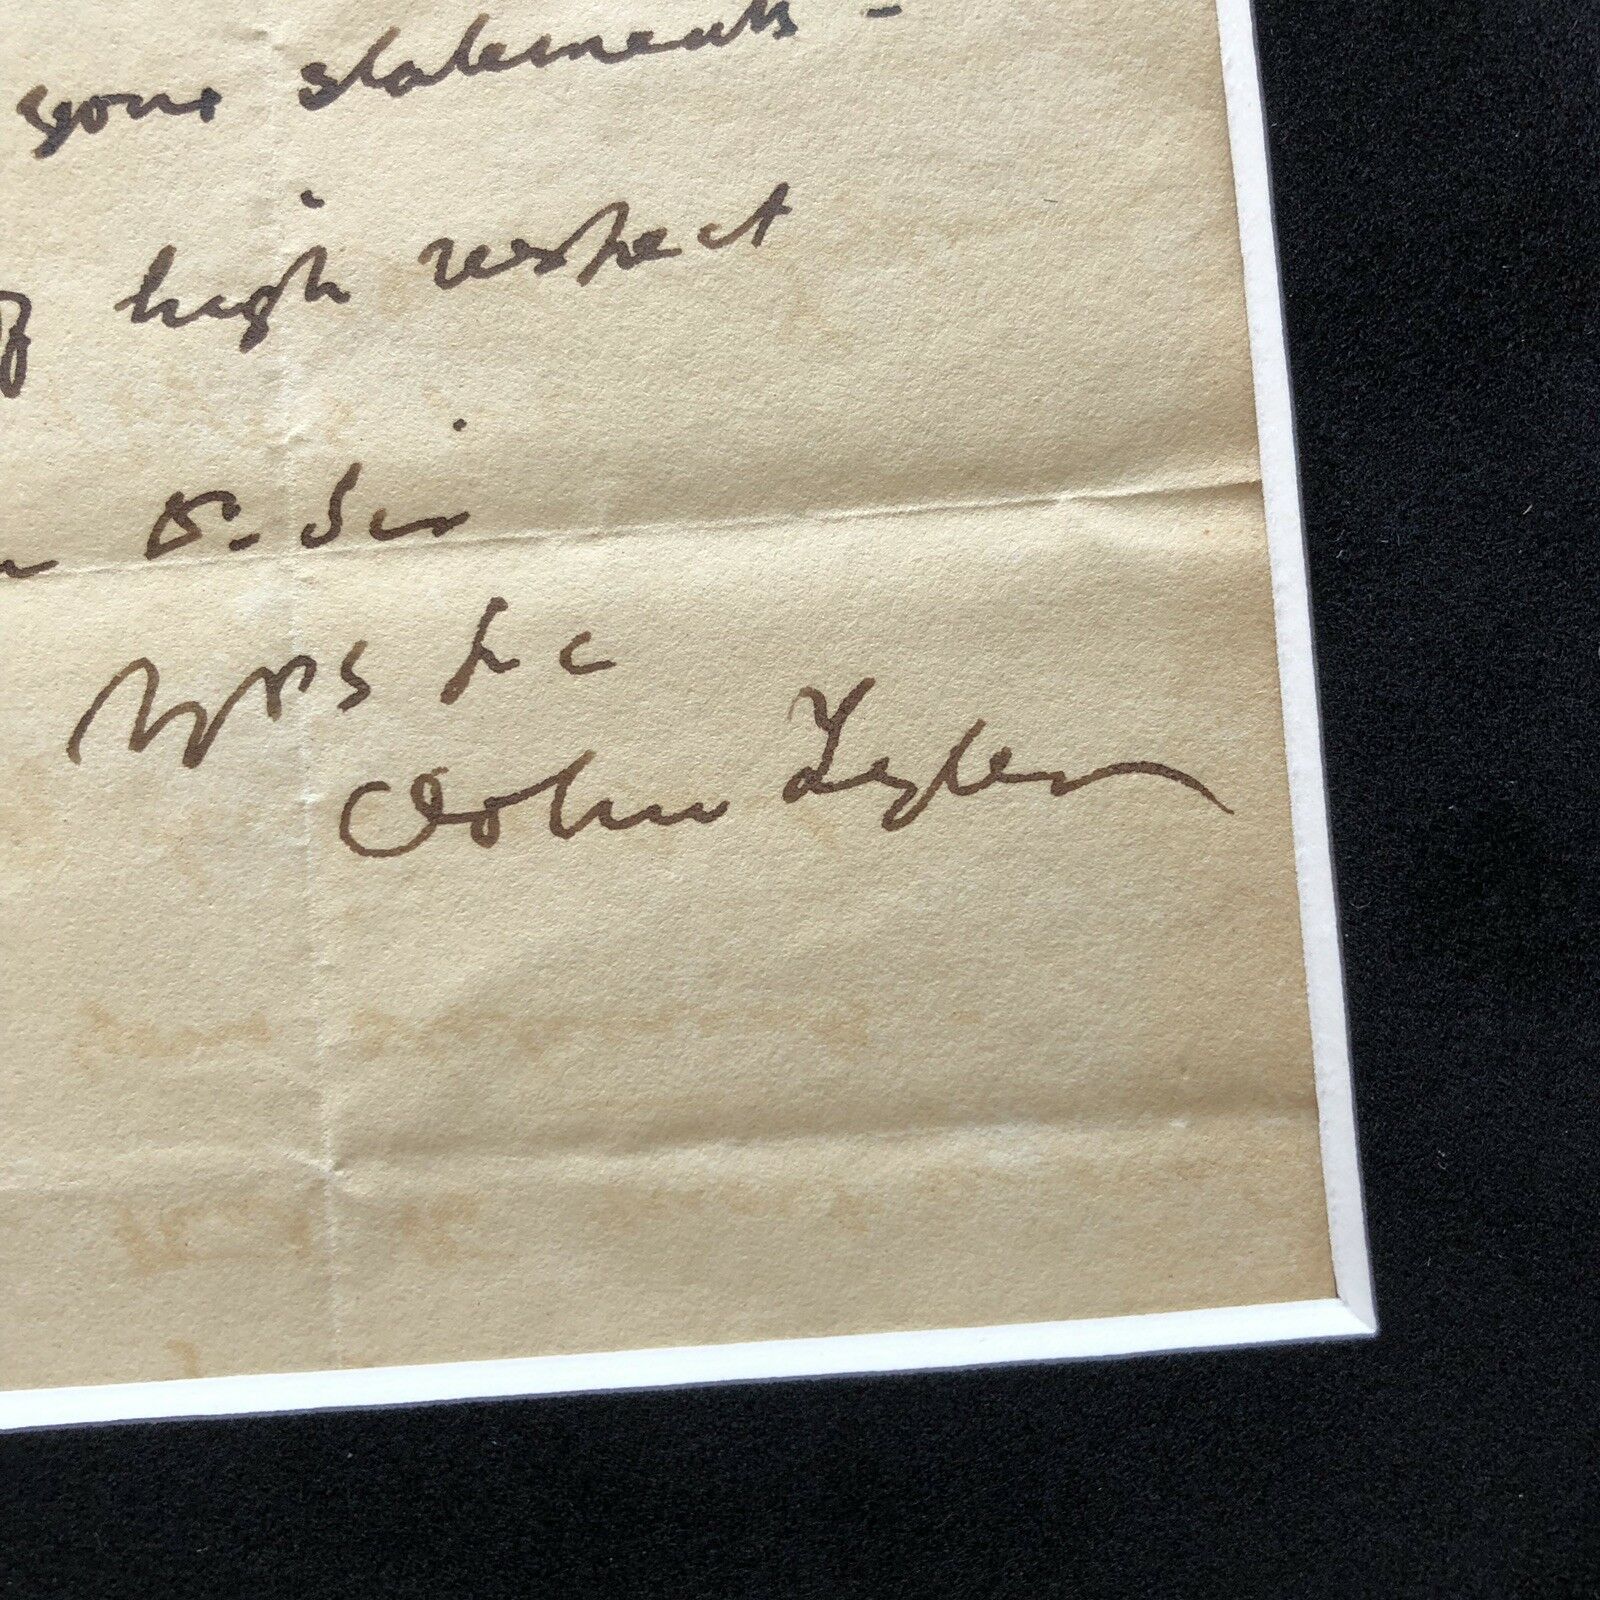 your statements -
high respect
Dr. Sir
Yrs &c
John Tyler